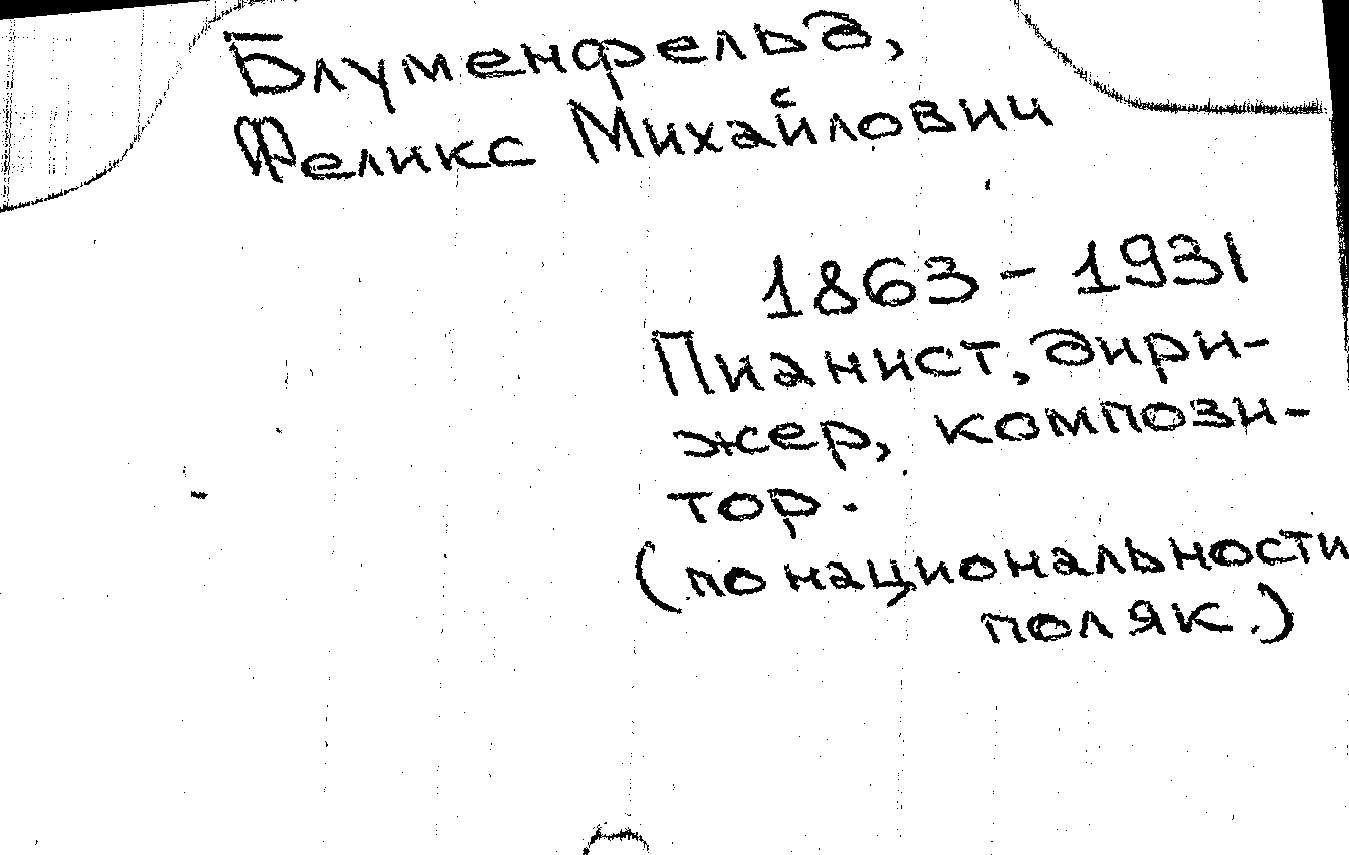 Блуменфельд,
Феликс Михайлович
1863 - 1931
Пианист, дири-
жер, компози-
тор.
(по национальности
поляк.)